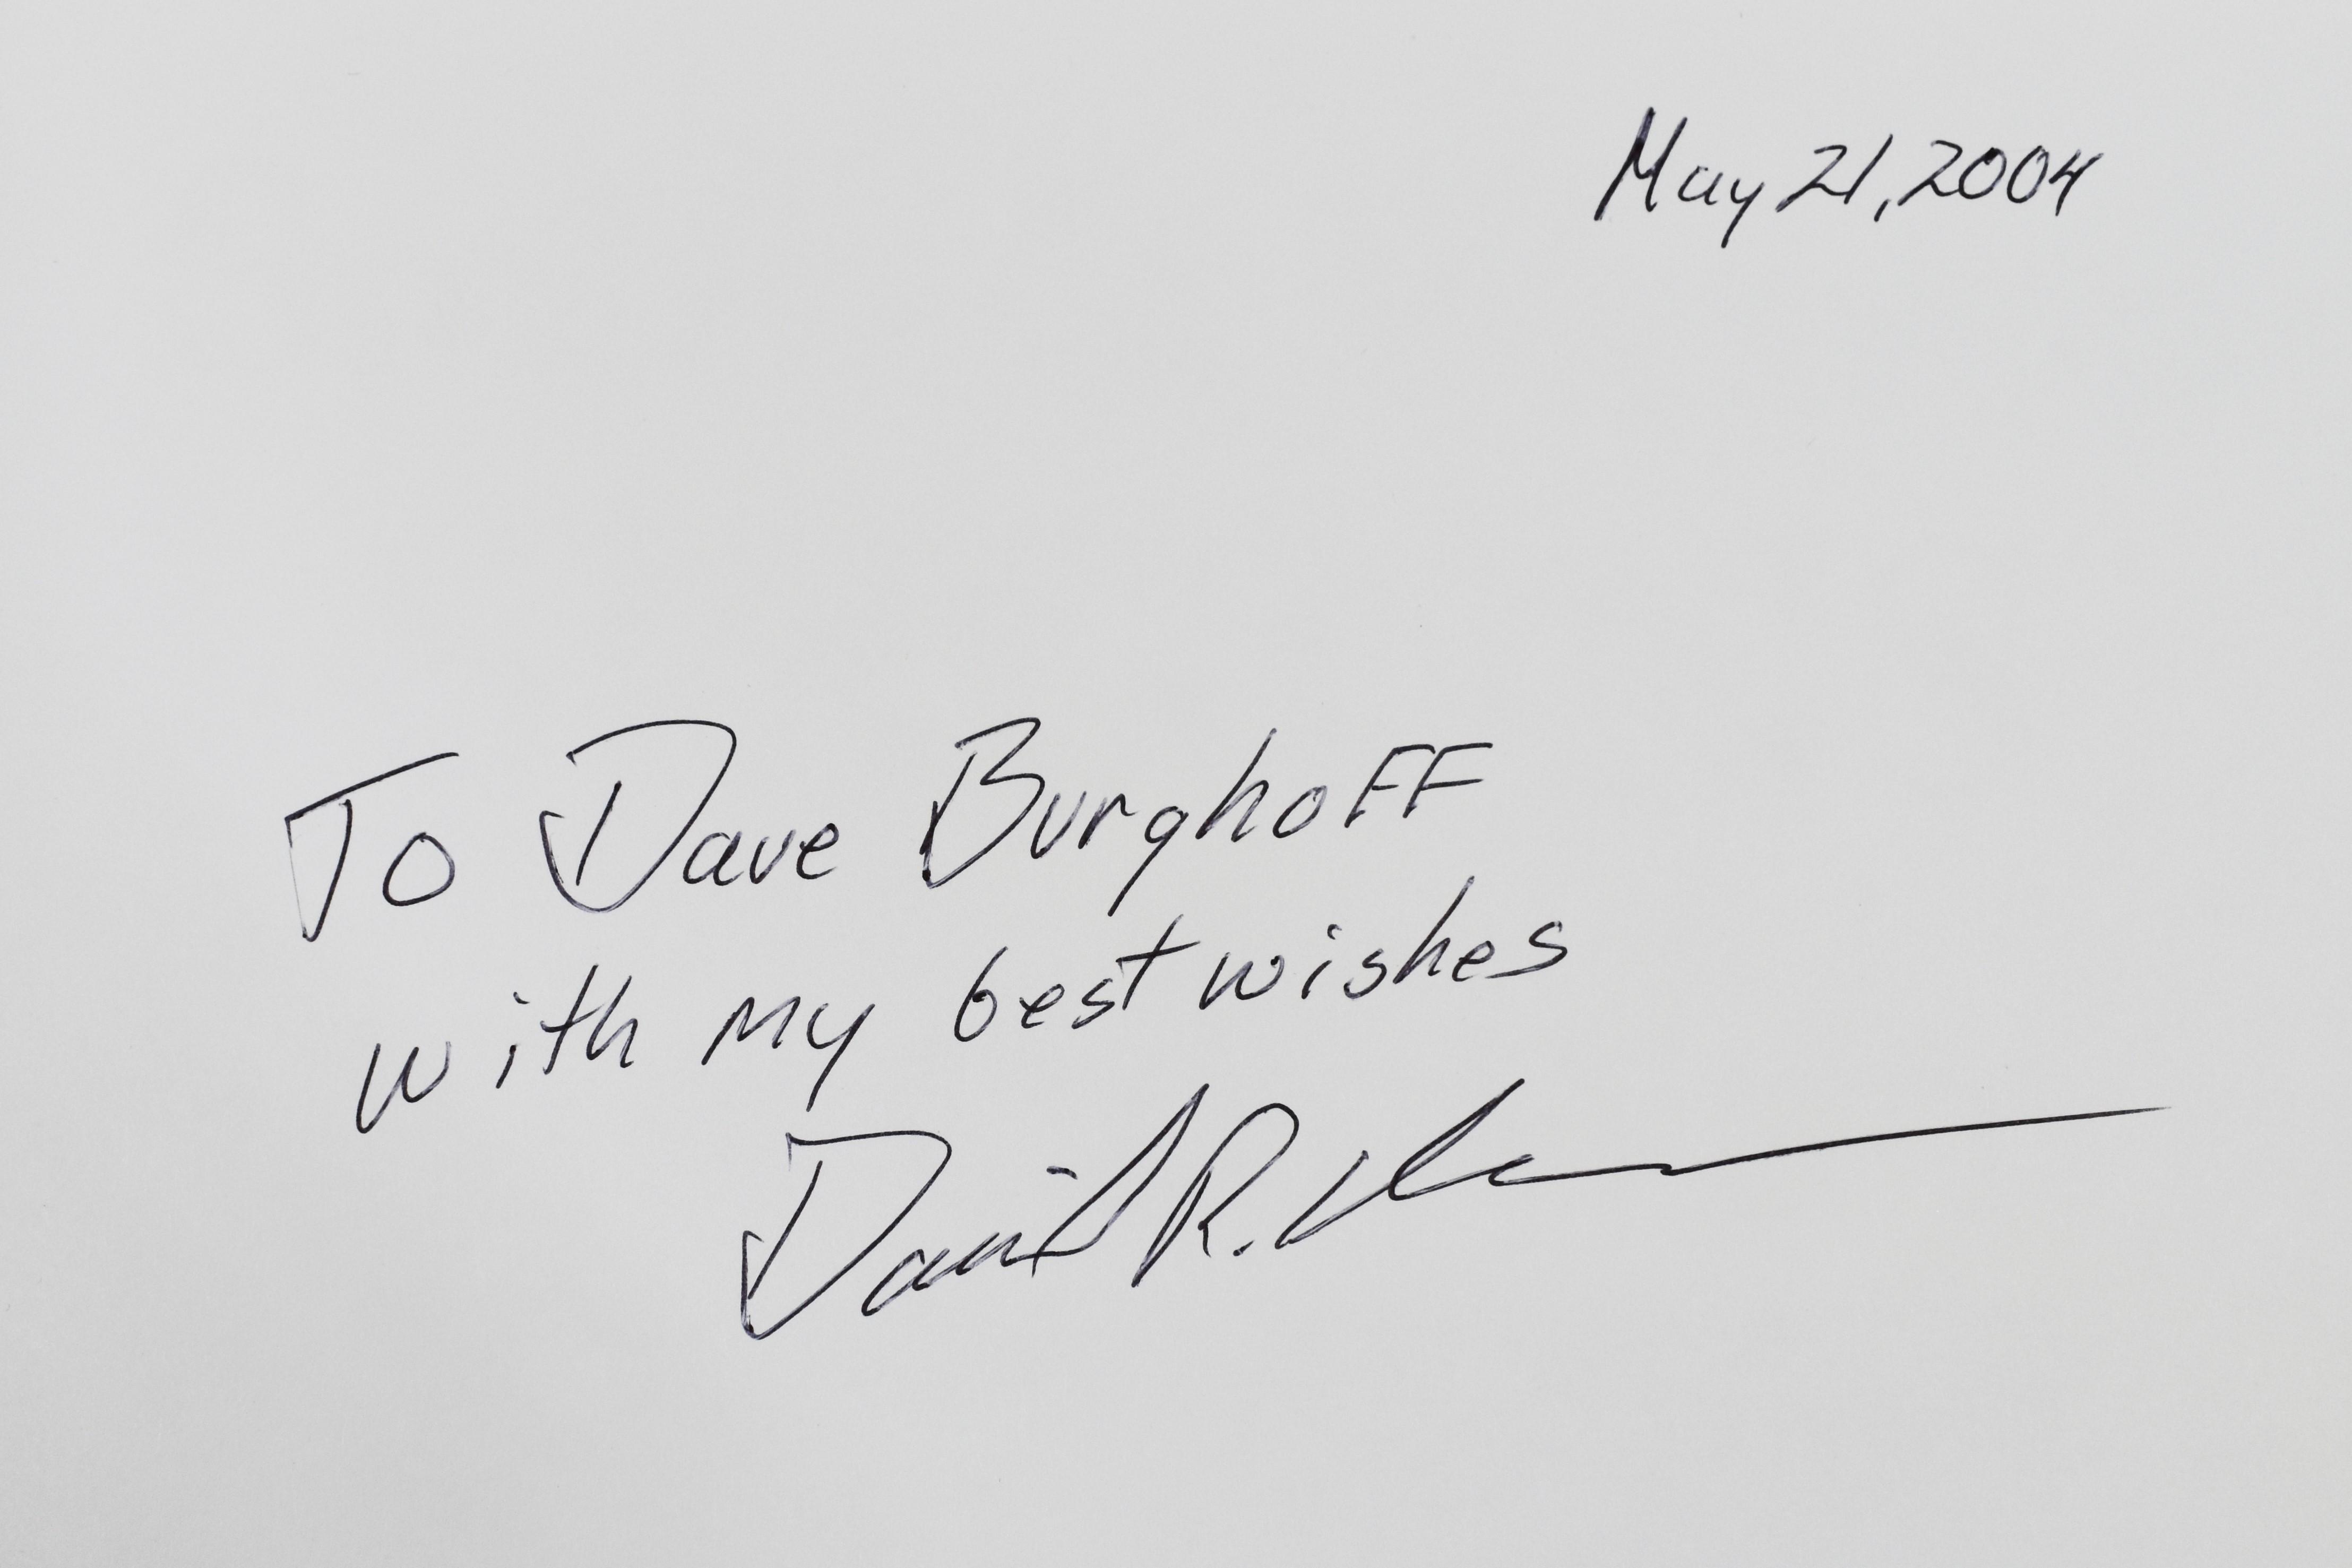 May 21, 2004
To Dave Burghoff
with my best wishes
David R.